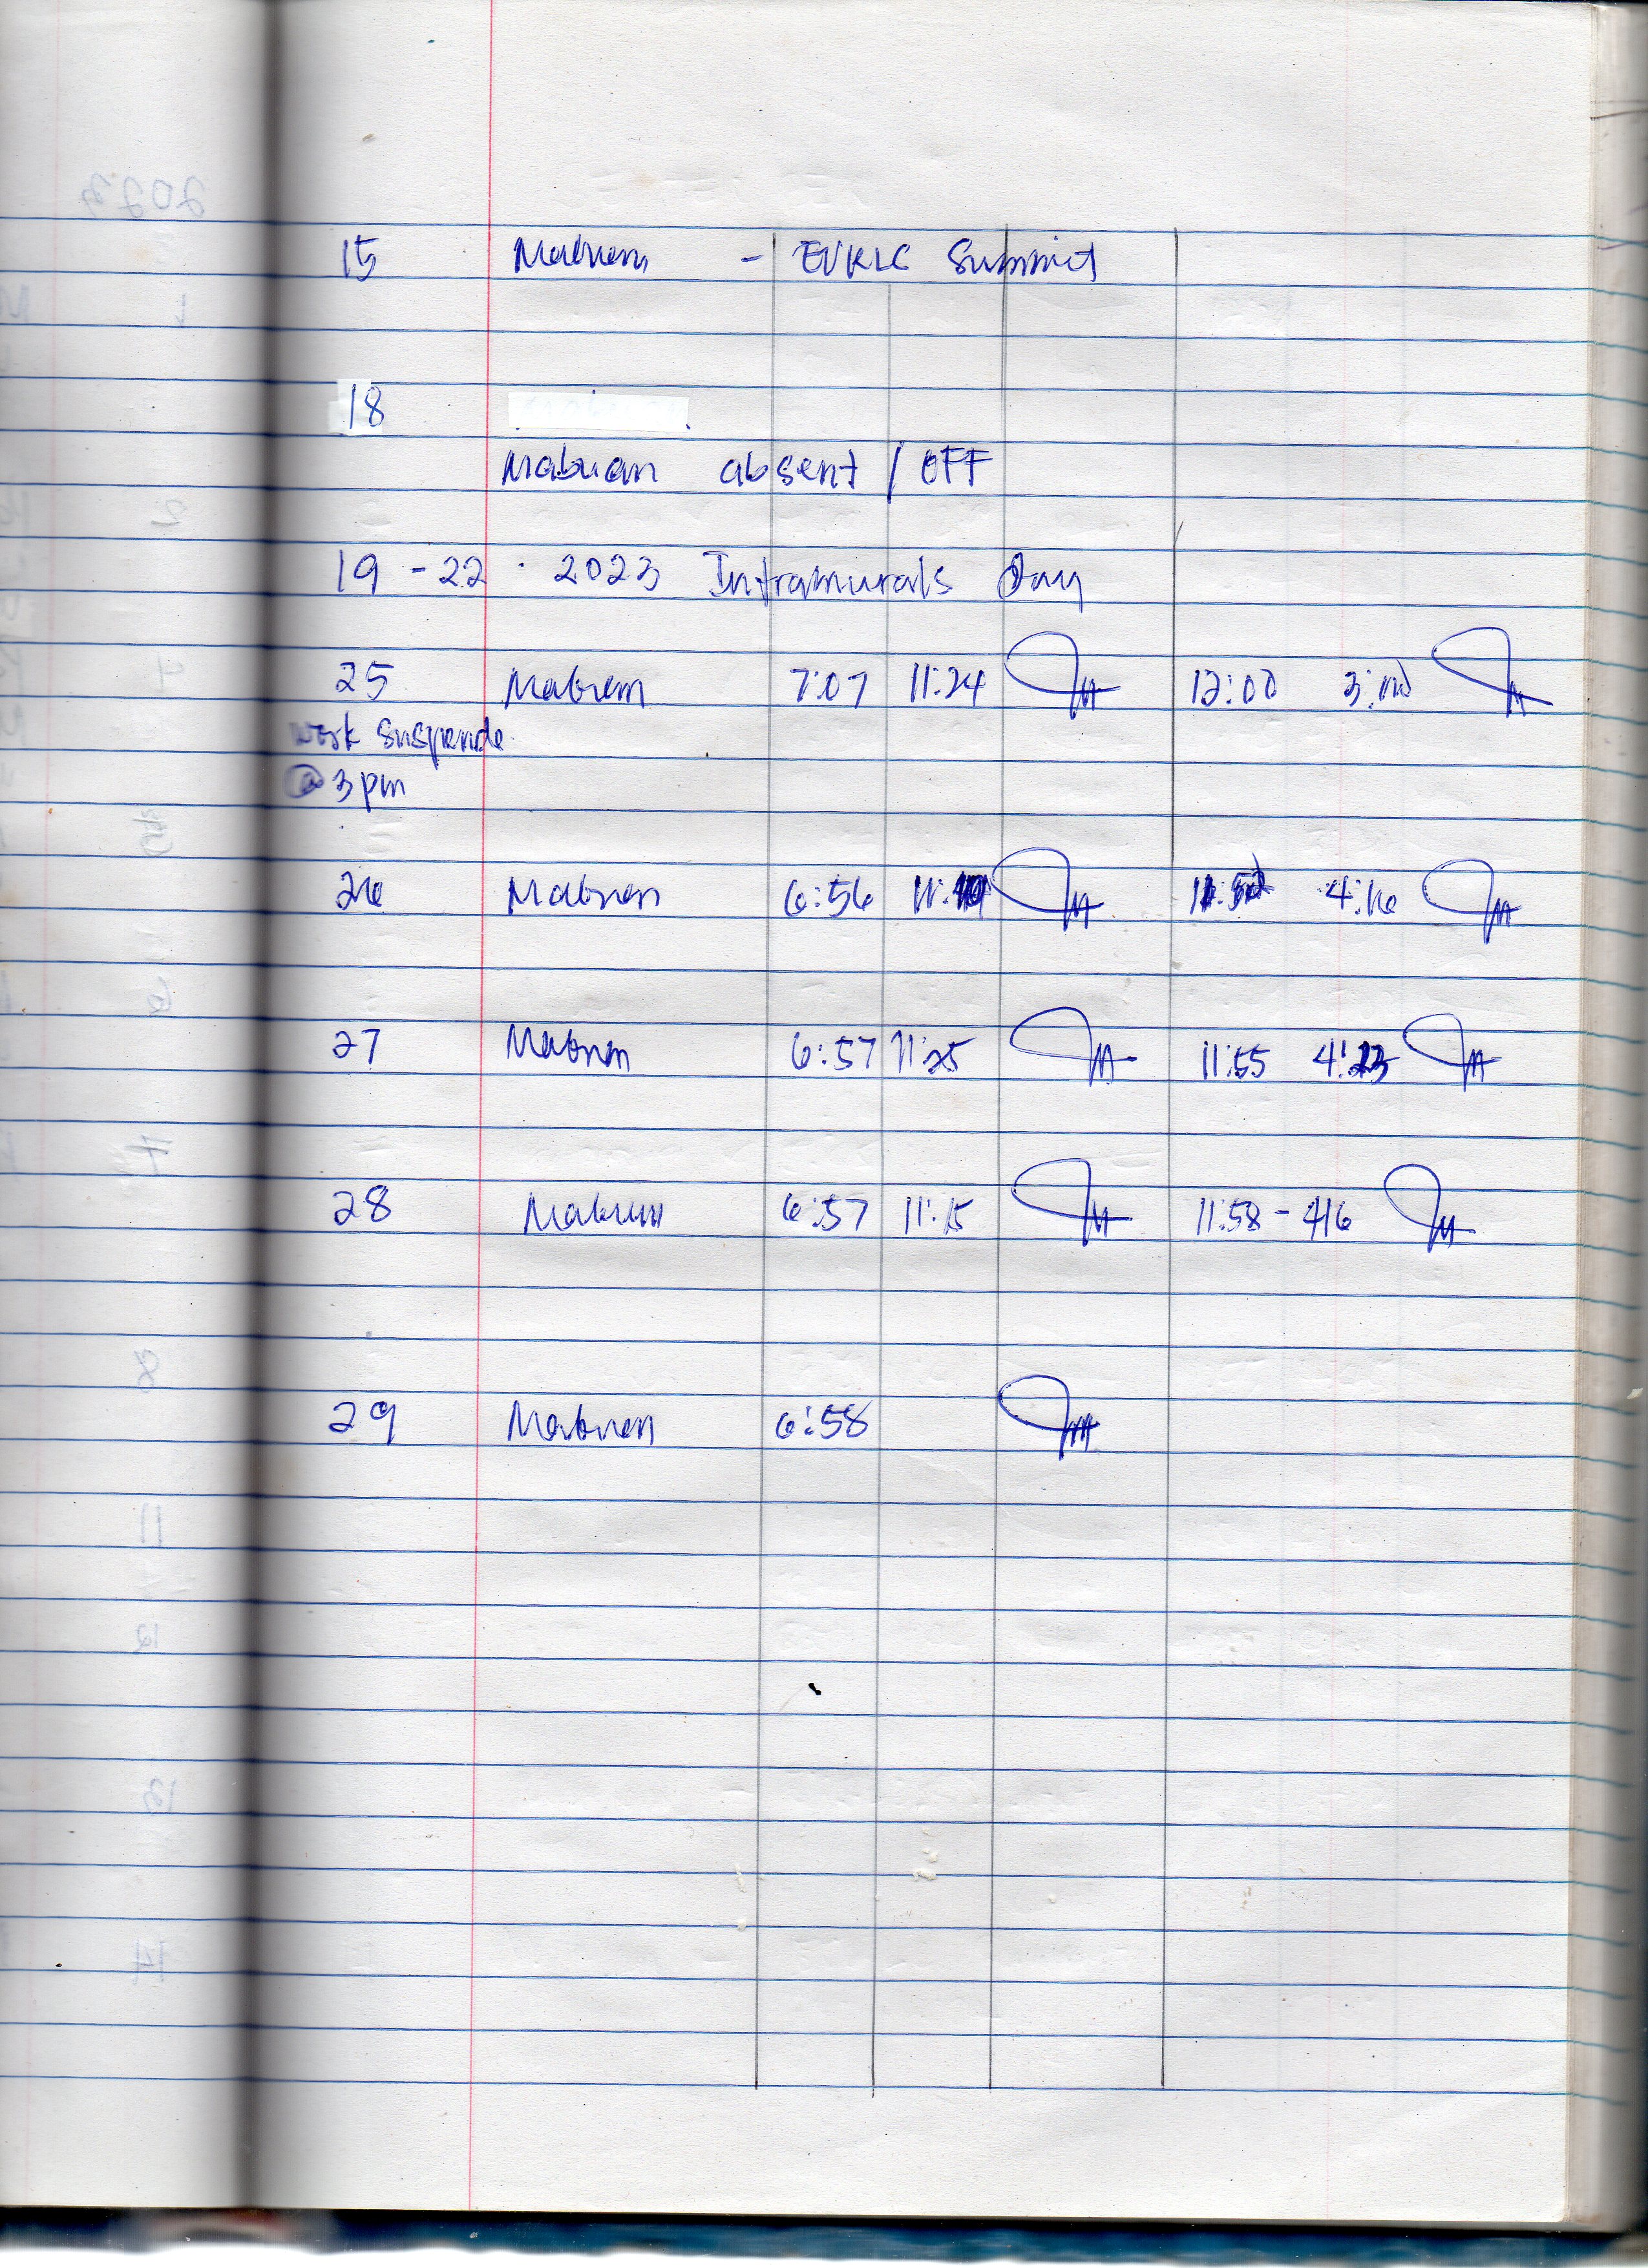 15 Mabuan - EVRLC Summit
18
Mabuan absent / OFF
19 - 22 · 2023 Intramurals Day
25 Mabuan 7:07 11:24 12:00 3:00
work suspende
@ 3pm
26 Mabuan 6:56 4:16
27 Mabuan 6:57 11:25 11:55 4:23
28 Mabuan 6:57 11:15 11:58 - 416
29 Mabuan 6:58